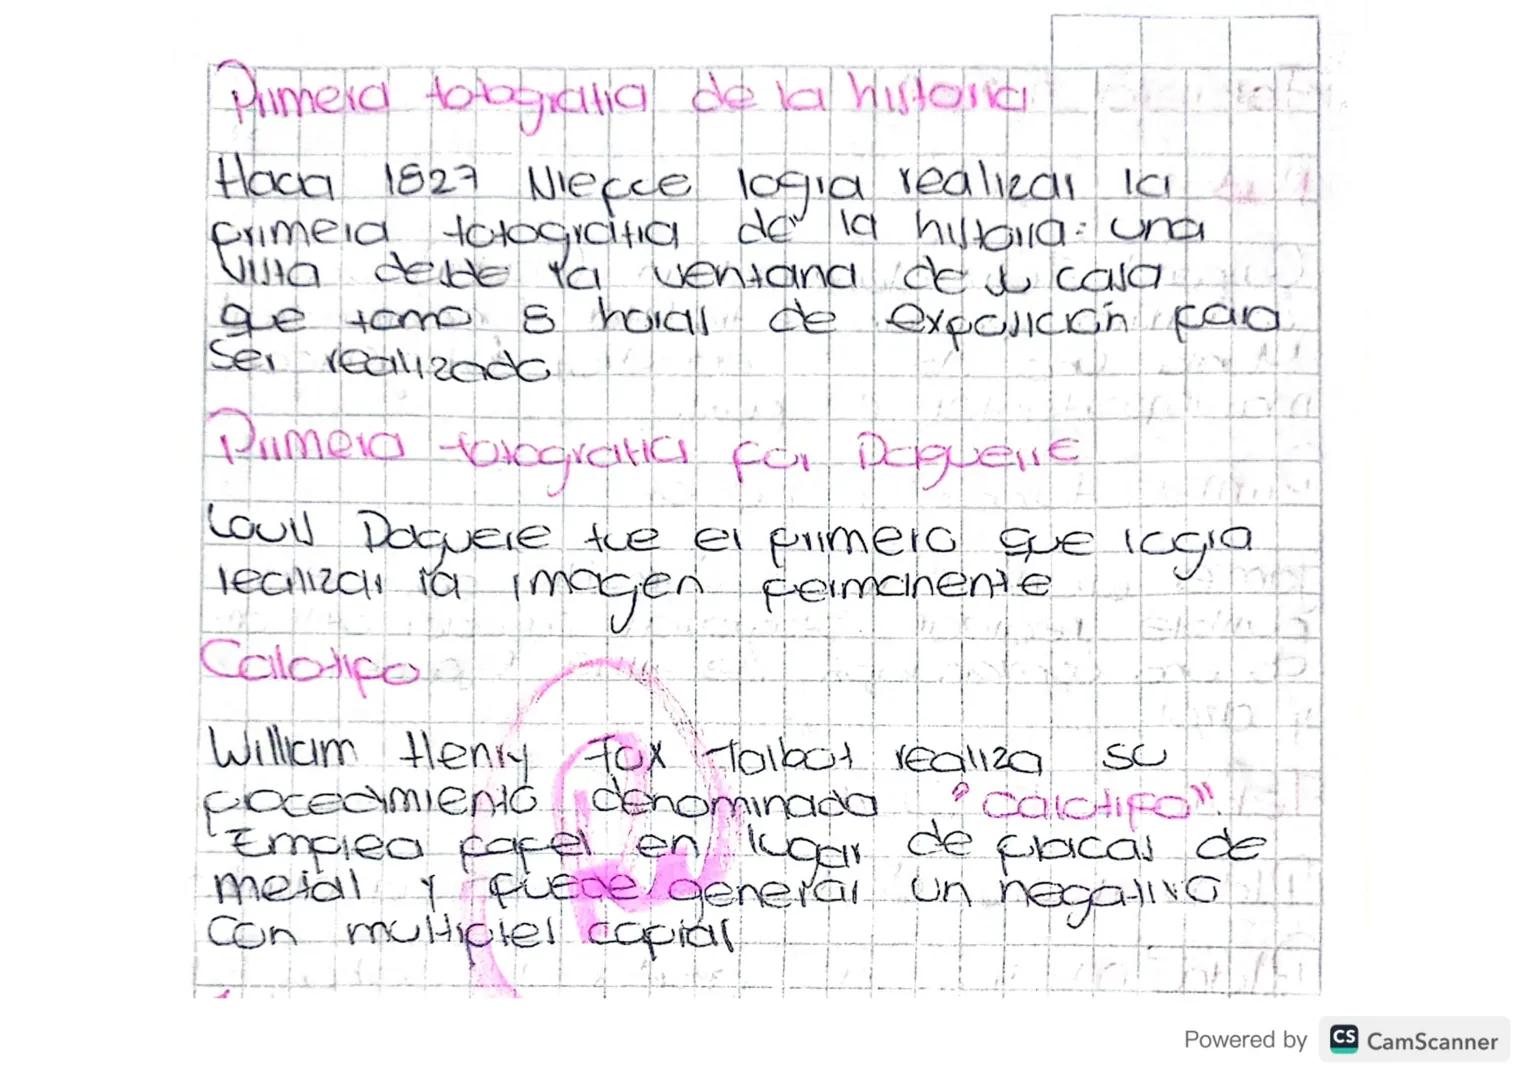 Primera fotografia de la historia
Hacia 1827 Niepce logra realizar la
primera fotografia de la historia: una
vista desde la ventana de su casa
que tomo 8 horas de exposición para
ser realizado
Primera fotografia por Daguerre
Louis Daguere fue el primero que logra
realizar la imagen permanente
Calotipo
William Henry Fox Talbot realiza su
pocedimiento denominado "calotipo".
Emplea papel en lugar de placas de
metal y puede generar un negativo
con multiples copias
Powered by CS CamScanner